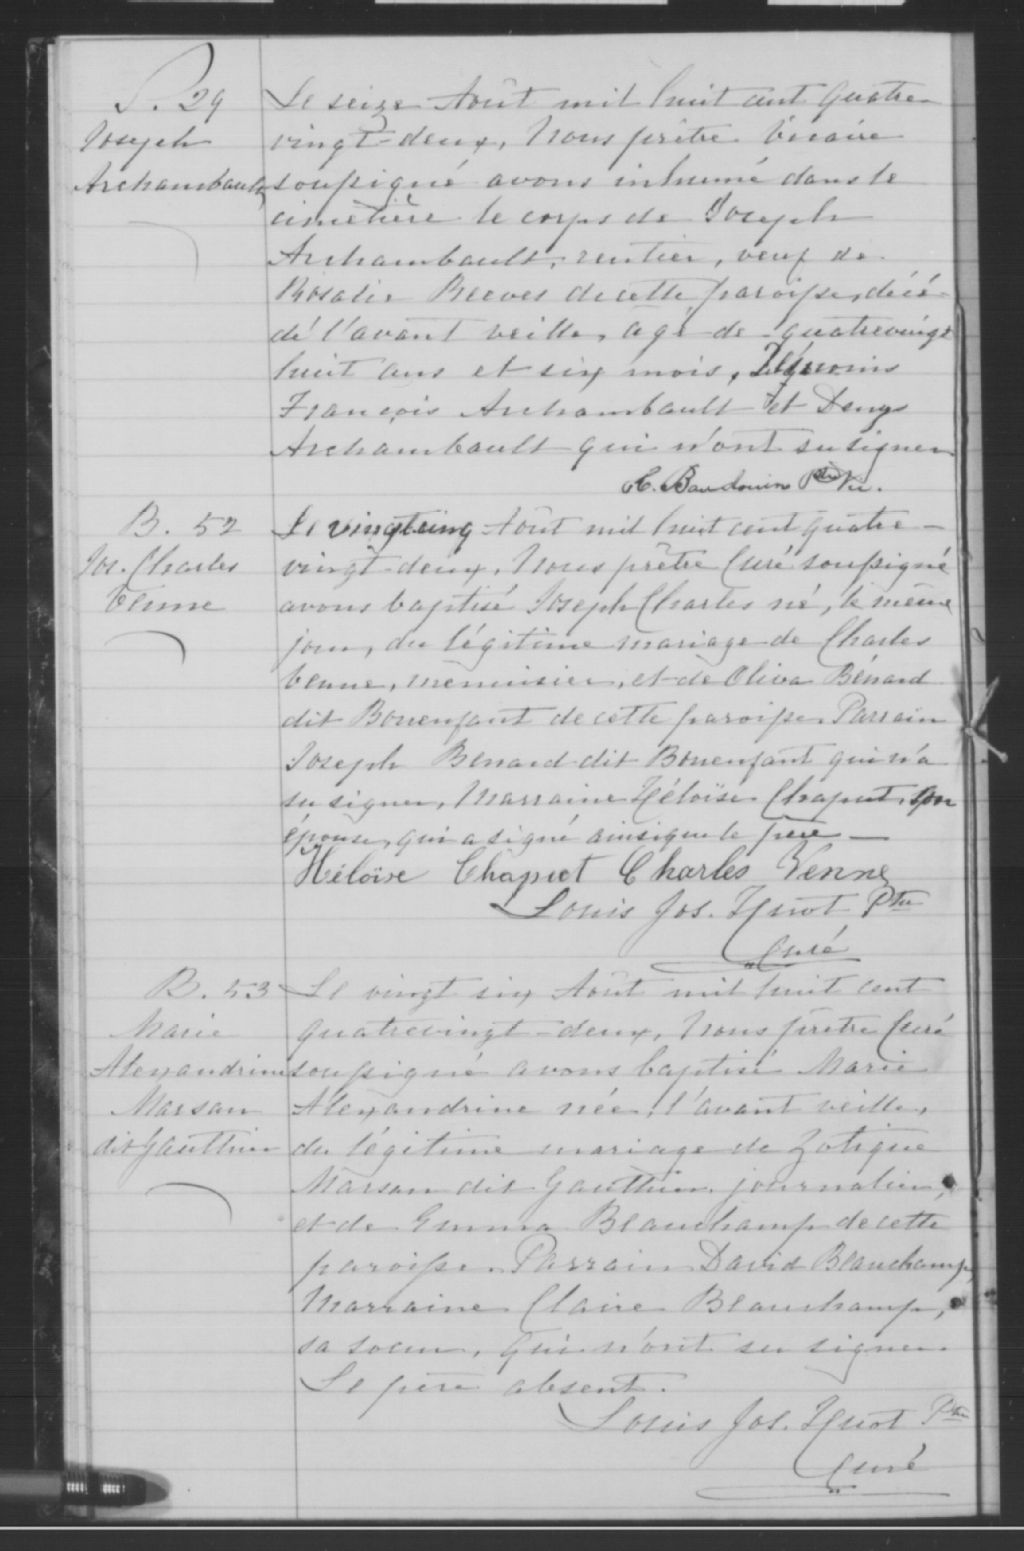 S. 29
Joseph
Archambault
Le seize Août mil huit cent quatre-
vingt-deux, Nous prêtre Vicaire
soussigné avons inhumé dans le
cimetière le corps de Joseph
Archambault, rentier, veuf de
Rosalie Reeves de cette paroisse, décé-
dé l'avant veille, agé de quatrevingt
huit ans et six mois, Témoins
François Archambault et Denys
Archambault qui n'ont su signer
C. Baudouin Ptre Vic.
B. 52
Jos. Charles
Venne
Le vingtcinq Août mil huit cent quatre-
vingt-deux, Nous prêtre Curé soussigné
avons baptisé Joseph Charles né, le même
jour, du légitime mariage de Charles
Venne, menuisier, et de Oliva Bénard
dit Bonenfant de cette paroisse. Parrain
Joseph Benard dit Bonenfant qui n'a
su signer, Marraine Héloïse Chaput, son
épouse, qui a signé ainsi que le père —
Héloïse Chaput Charles Venne
Louis Jos. Huot Ptre
Curé
B. 53
Marie
Alexandrine
Marsan
dit Gauthier
Le vingt six Août mil huit cent
quatrevingt-deux, Nous prêtre Curé
soussigné avons baptisé Marie
Alexandrine née, l'avant veille,
du légitime mariage de Zotique
Marsan dit Gauthier, journalier,
et de Emma Beauchamp de cette
paroisse. Parrain David Beauchamp,
Marraine Claire Beauchamp,
sa soeur, qui n'ont su signer.
Le père absent.
Louis Jos. Huot Ptre
Curé